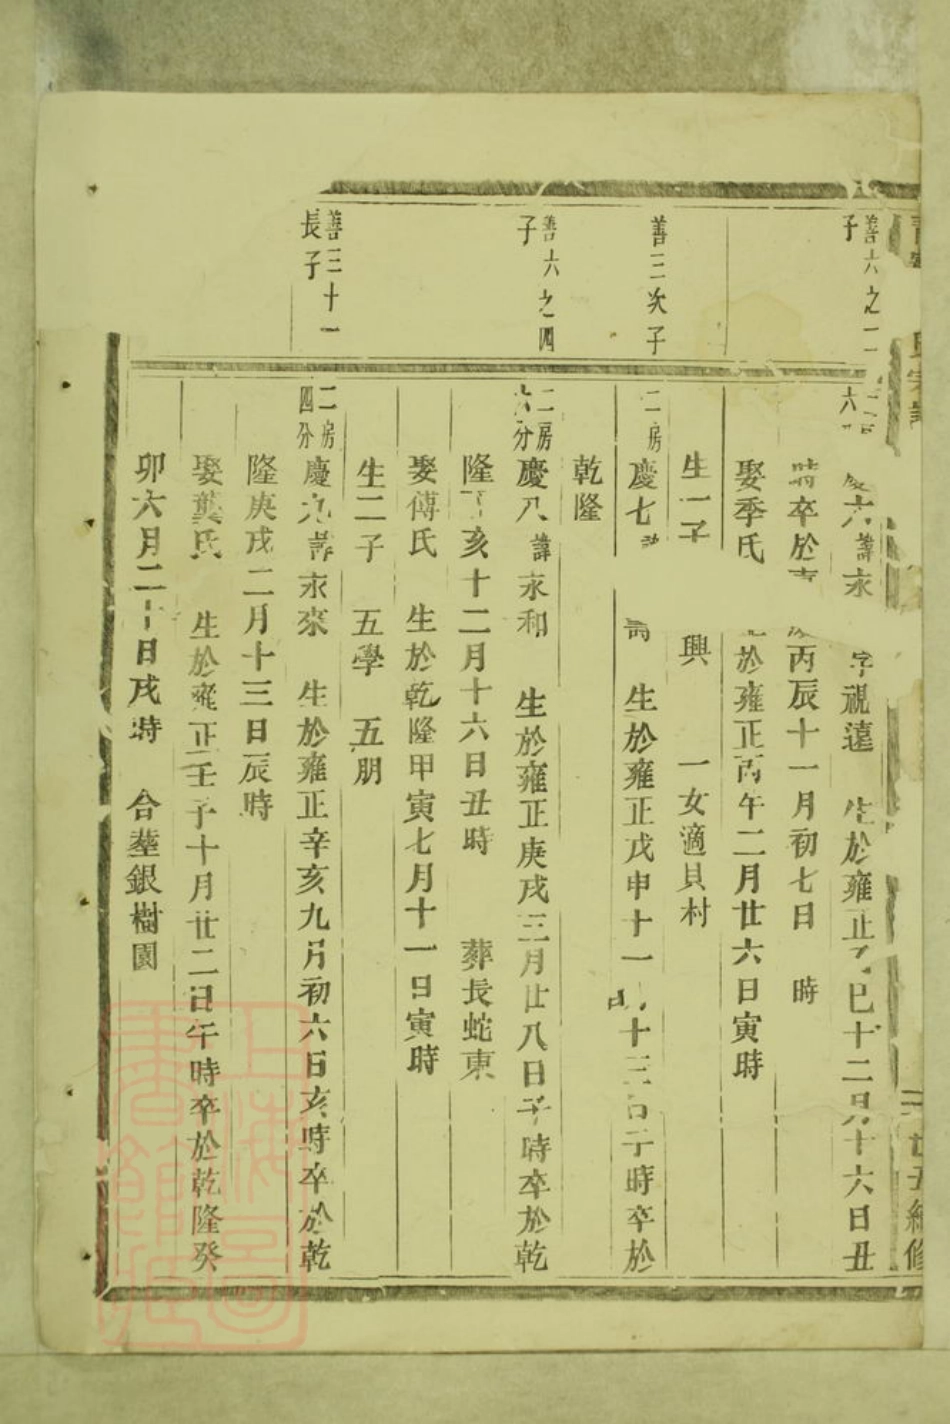 善六之二
子
善三次子
善六之四
子
善三十一
長子
六
六諱永 字視遠 生於雍正 巳十二月十六日丑
時卒於 丙辰十一月初七日 時
娶季氏 於雍正丙午二月廿六日寅時
生一子 興 一女適貝村
二房
慶七 生於雍正戊申十一 十三日子時卒於
乾隆
二房
六分
慶八諱永和 生於雍正庚戌三月廿八日子時卒於乾
隆 亥十二月十六日丑時 葬長蛇東
娶傅氏 生於乾隆甲寅七月十一日寅時
生二子 五學 五朋
二房
四分
慶九諱永來 生於雍正辛亥九月初六日亥時卒於乾
隆庚戌二月十三日辰時
娶龔氏 生於雍正壬子十月廿二日午時卒於乾隆癸
卯六月二十日戌時 合塟銀樹園
上海圖
書館藏